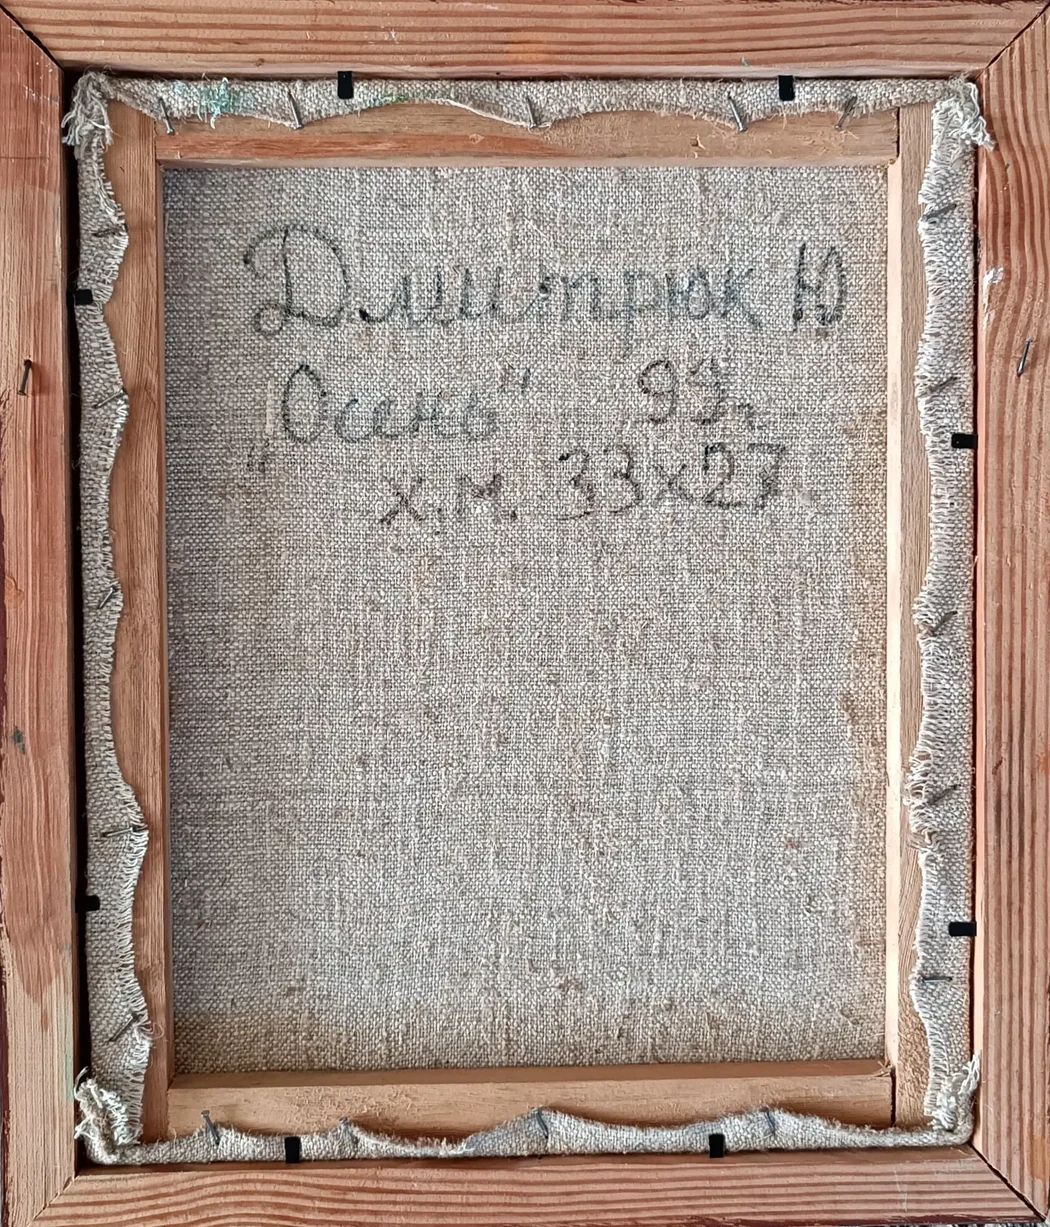 Дмитрюк Ю
"Осень" 99г.
х.м. 33х27